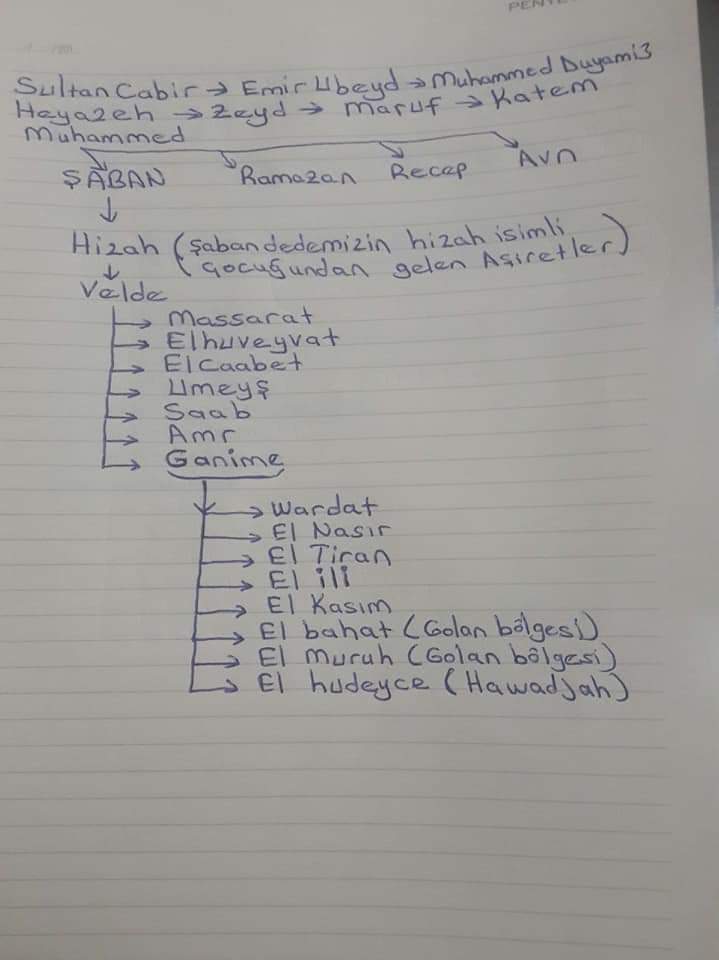 Sultan Cabir → Emir Ubeyd → Muhammed Duyami3
Heyazeh → Zeyd → Maruf → Katem
Muhammed
ŞABAN Ramazan Recep Avn
Hizah (Şaban dedemizin hizah isimli
çocuğundan gelen Aşiretler)
Velde
Massarat
Elhuveyvat
El Caabet
Umeyş
Saab
Amr
Ganime
Wardat
El Nasır
El Tiran
El ili
El Kasım
El bahat (Golan bölgesi)
El muruh (Golan bölgesi)
El hudeyce (Hawadjah)